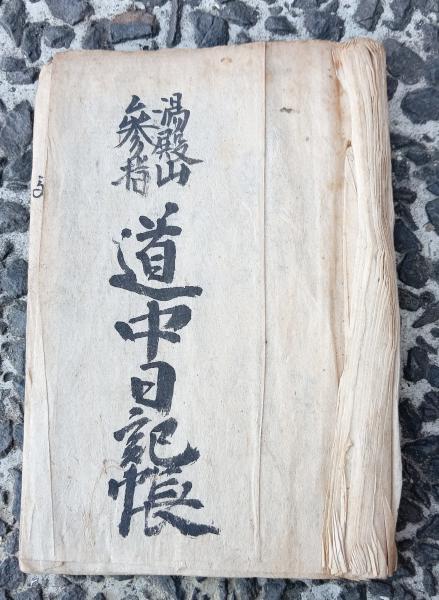 湯殿山
参指
道中日記帳